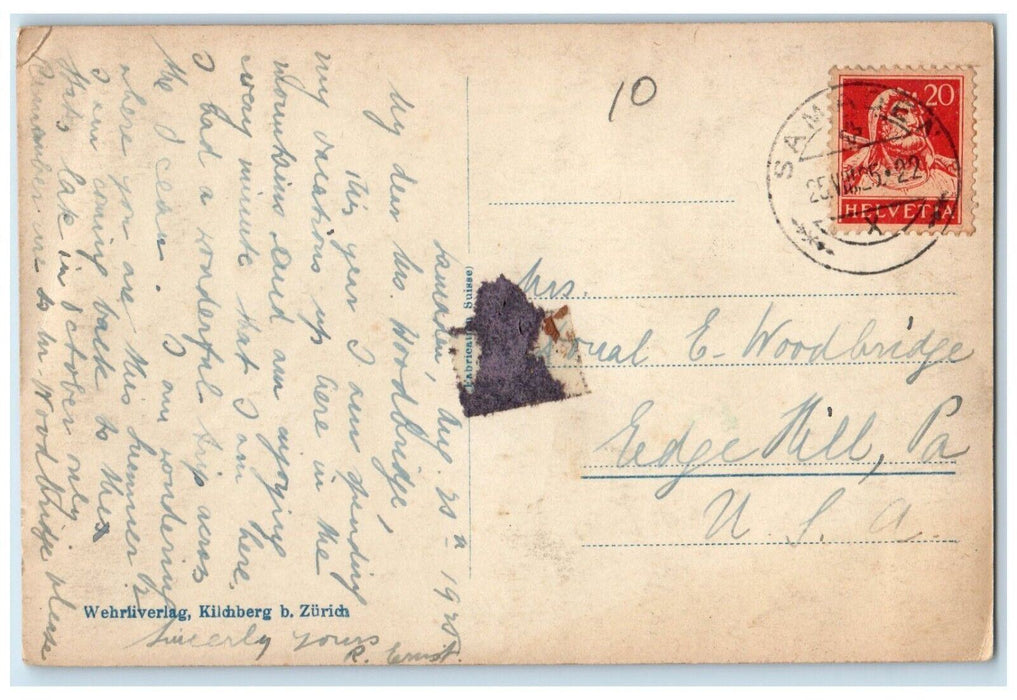 Samaden, Aug. 25th - 1925
My dear Mrs. Woodbridge,
This year I am spending
my vacations up here in the
mountains and am enjoying
every minute that I am here.
I had a wonderful trip across
the ocean. I am wondering
where you are this summer?
I am coming back to the
States late in October only
Remember me to Mr Woodbridge please
Sincerely yours
R. Ernst.
10
20
HELVETIA
25.VIII.25-22
Fabrication Suisse)
Mrs.
E. Woodbridge
Edge Hill, Pa
U. S. A.
Wehrliverlag, Kilchberg b. Zürich